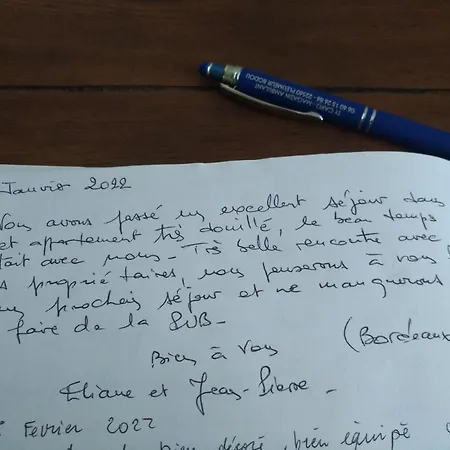 TY CARO - MAGASIN AMBULANT
22560 PLEUMEUR BODOU
Janvier 2022
Nous avons passé un excellent séjour dans
et appartement très douillé, le beau temps
tait avec nous - Très belle rencontre avec
s propriétaires, nous penserons à vous
prochain séjour et ne manquerons
faire de la PUB -
Bien à vous (Bordeaux
Eliane et Jean-Pierre -
Février 2022
bien décoré, bien équipé